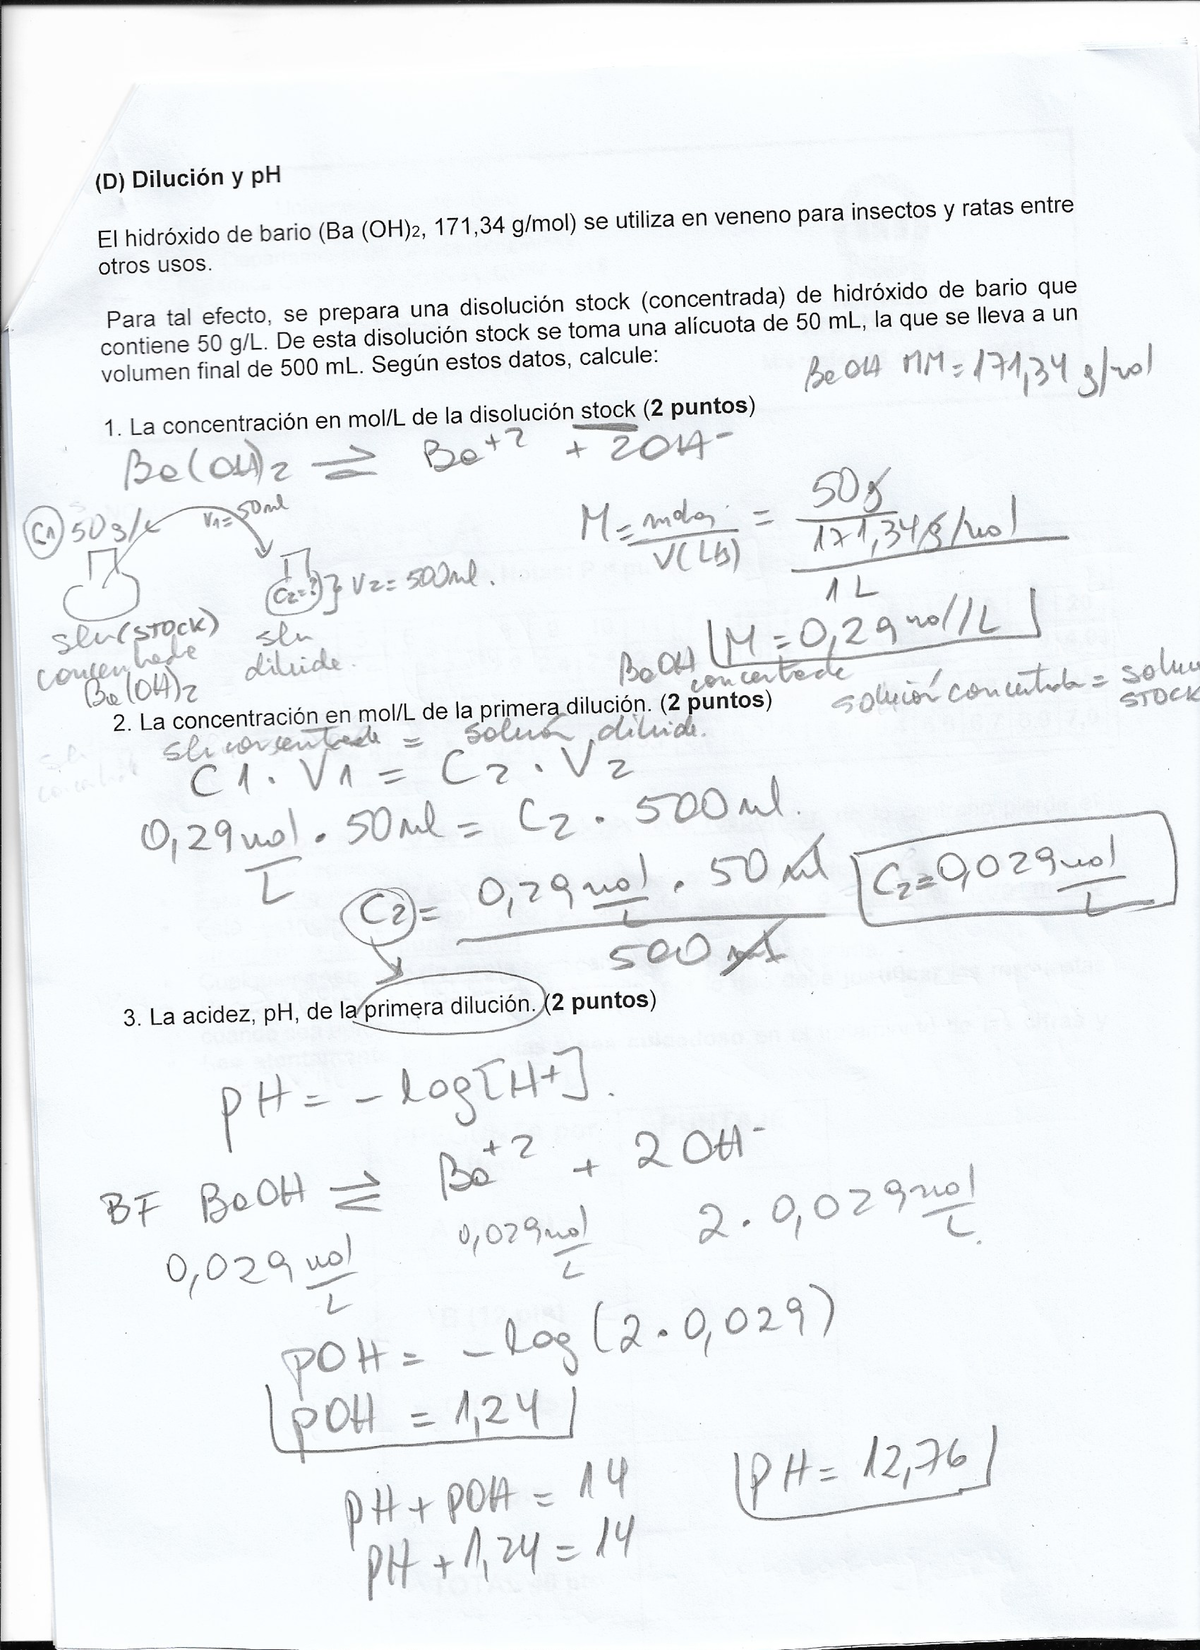 (D) Dilución y pH
El hidróxido de bario (Ba (OH)2, 171,34 g/mol) se utiliza en veneno para insectos y ratas entre
otros usos.
Para tal efecto, se prepara una disolución stock (concentrada) de hidróxido de bario que
contiene 50 g/L. De esta disolución stock se toma una alícuota de 50 mL, la que se lleva a un
volumen final de 500 mL. Según estos datos, calcule:
BaOH MM = 171,34 g/mol
1. La concentración en mol/L de la disolución stock (2 puntos)
Ba(OH)2 ⇌ Ba+2 + 2OH-
C1 50g/L V1=50ml
C2=? } V2=500ml.
sln (STOCK)
concentrada
Ba(OH)2
sln
diluida.
M = moles / V(Lts) = 50g / 171,34g/mol / 1L
BaOH M = 0,29 mol/L
concentrada
solución concentrada = soluc
STOCK
2. La concentración en mol/L de la primera dilución. (2 puntos)
sln concentrada = solución diluida.
C1 · V1 = C2 · V2
0,29 mol/L · 50 ml = C2 · 500 ml.
C2 = 0,29 mol/L · 50 ml / 500 ml
C2 = 0,029 mol/L
3. La acidez, pH, de la primera dilución. (2 puntos)
pH = - log[H+].
BF BaOH ⇌ Ba+2 + 2OH-
0,029 mol/L 0,029 mol/L 2 · 0,029 mol/L.
pOH = - log(2 · 0,029)
pOH = 1,24
pH + pOH = 14
pH + 1,24 = 14
pH = 12,76